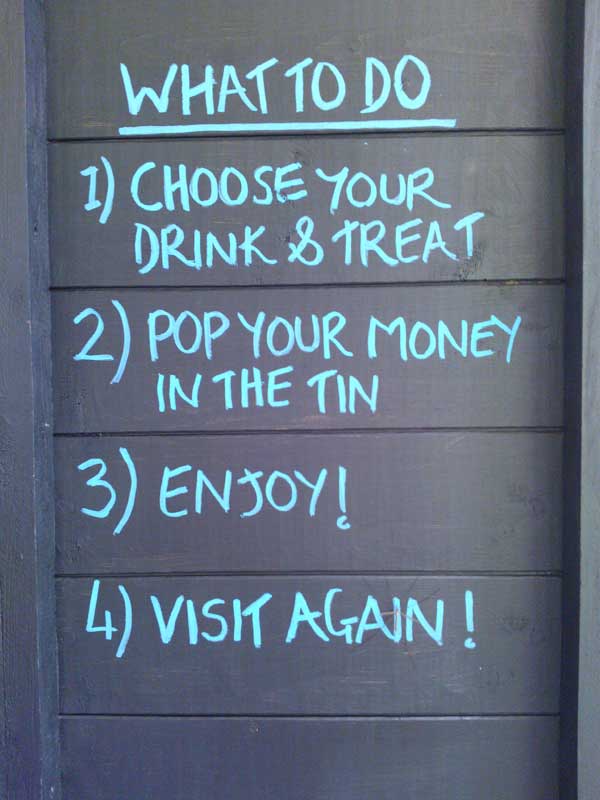 WHAT TO DO
1) CHOOSE YOUR
DRINK & TREAT
2) POP YOUR MONEY
IN THE TIN
3) ENJOY!
4) VISIT AGAIN!